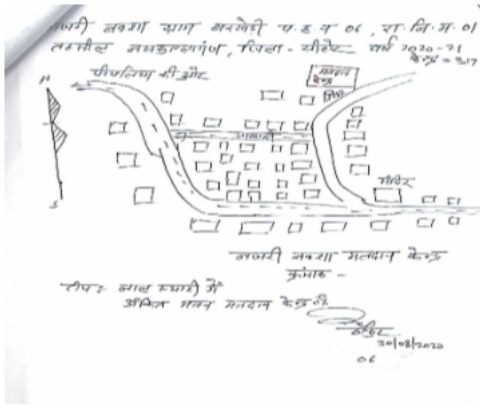 नजरी नक्शा ग्राम बरखेडी प.ह.न 06, रा.नि.म. 01
तहसील नसरुल्लागंज, जिला - सीहोर वर्ष 2020-21
केन्द्र = 317
पीपलिया की ओर
मतदान
केन्द्र
N
आबादी
मंदिर
S
नजरी नक्शा मतदान केन्द्र
क्रमांक -
टीप: लाल स्याही में
अंकित भवन मतदान केन्द्र है
20/08/2020
06